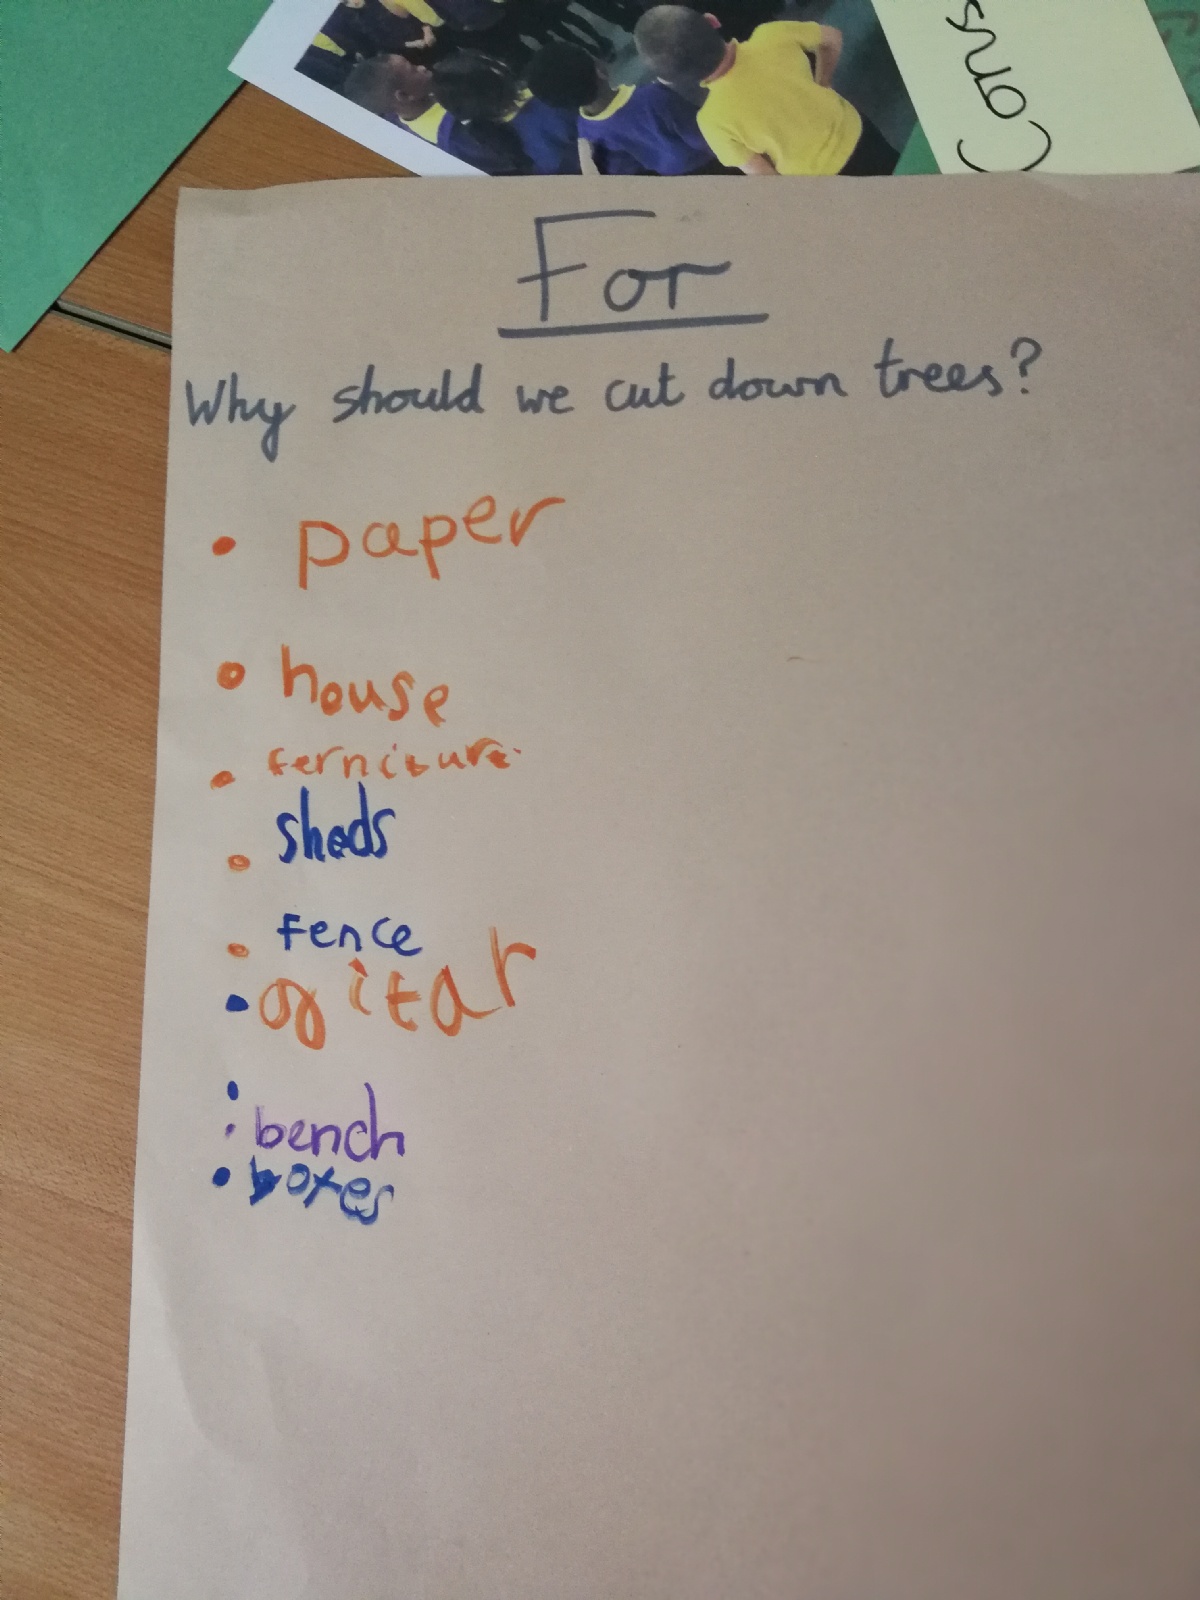 Cons
For
Why should we cut down trees?
• paper
• house
• ferniture
• sheds
• fence
• gitar
• bench
• boxes